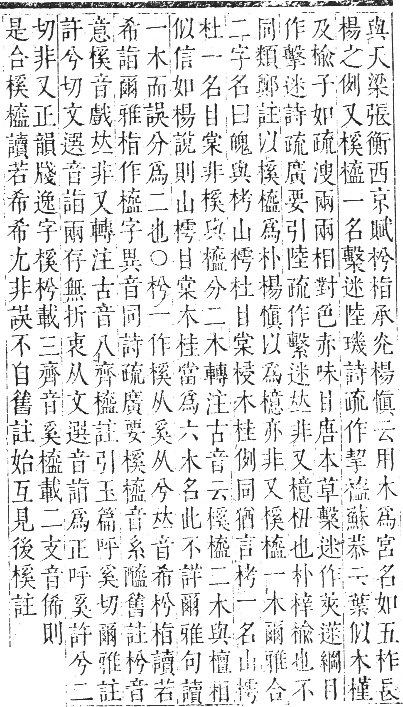 與天梁張衡西京賦枍栺承光楊愼云用木爲宮名如五柞長
楊之例又㰿橀一名繫迷陸璣詩疏作挈橀蘇恭云葉似木槿
及楡子如疏溲兩兩相對色赤味甘唐本草繫迷作莢蒾綱目
作擊迷詩疏廣要引陸疏作繫迷𠀤非又檍杻也朴梓楡也不
同類鄭註以㰿橀爲朴楊愼以爲檍亦非又㰿橀一木爾雅合
二字名曰魄與栲山樗杜甘棠梫木桂例同猶言栲一名山樗
杜一名甘棠非㰿與橀分二木轉注古音云㰿橀二木與檀相
似信如楊說則山樗甘棠木桂當爲六木名此不詳爾雅句讀
一木而誤分爲二也○枍一作㰿从奚从兮𠀤音希枍栺讀若
希詣爾雅栺作橀字異音同詩疏廣要㰿橀音系醯舊註枍音
意㰿音戲𠀤非又轉注古音八齊橀註引玉篇呼奚切爾雅註
許兮切文選音詣兩存無折衷从文選音詣爲正呼奚許兮二
切非又正韻牋逸字㰿枍載三齊音㰿橀載二支音俙則
是合㰿橀讀若希希尢非誤不自舊註始互見後㰿註